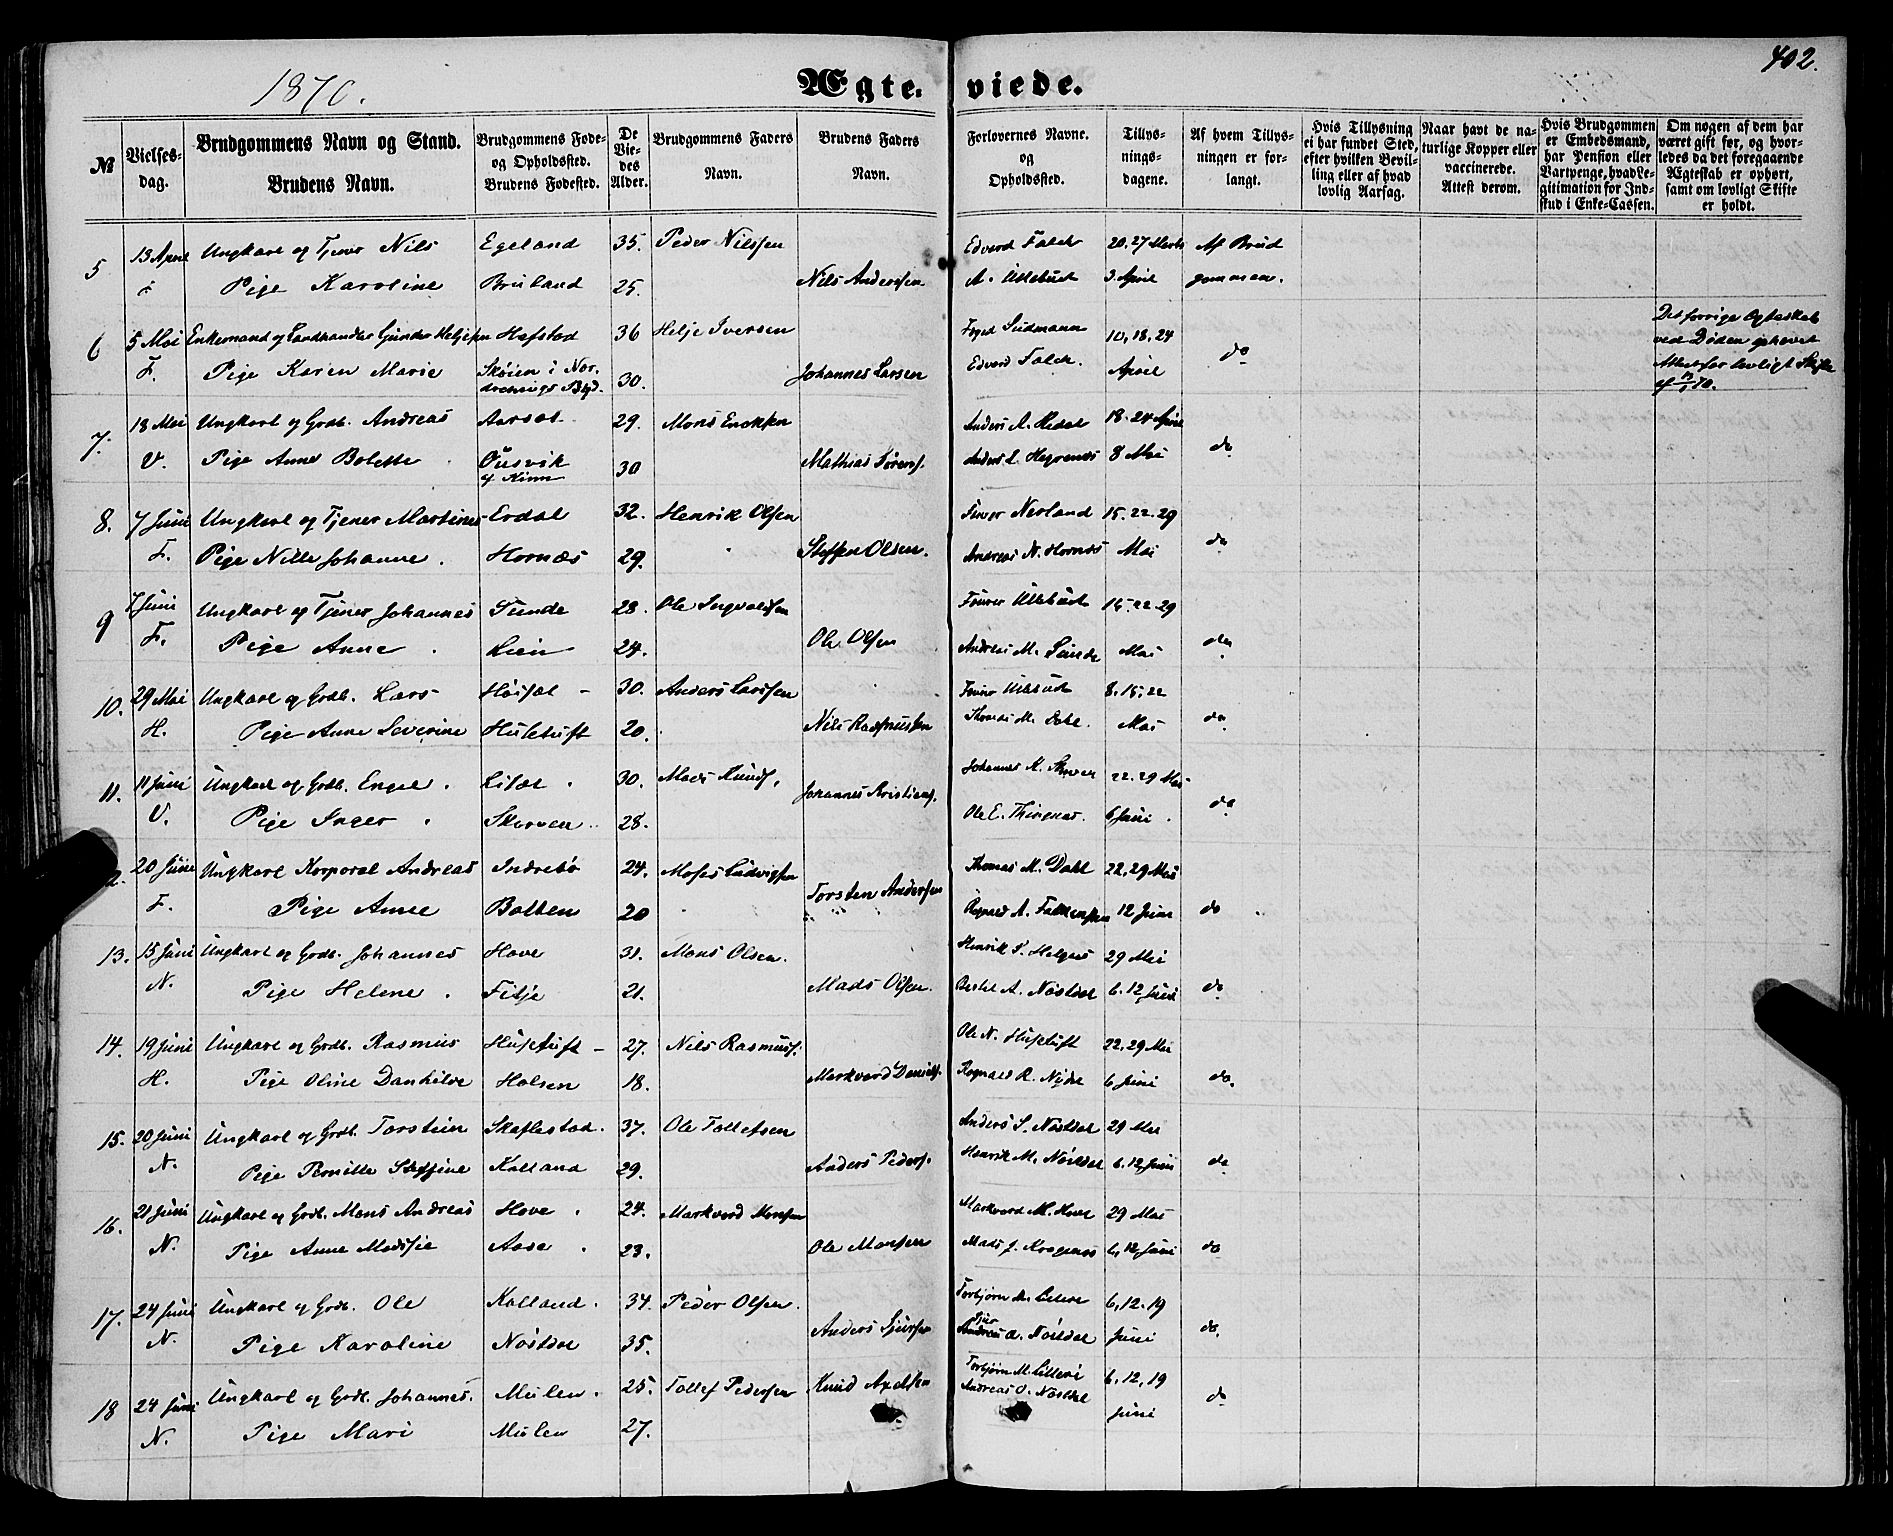 402.
1870.
Ægte-viede.
№
Vielses-dag.
Brudgommens Navn og Stand.
Brudens Navn.
Brudgommens Føde- og Opholdssted.
Brudens Fødested.
De Vie-des Alder.
Brudgommens Faders Navn.
Brudens Faders Navn.
Forlovernes Navne. og Opholdssted.
Tillys-nings-dagene.
Af hvem Tillys-ningen er for-langt.
Hvis Tillysning ei har fundet Sted, efter hvilken Bevil-ling eller af hvad lovlig Aarsag.
Naar havt de na-turlige Kopper eller vaccinerede. Attest derom.
Hvis Brudgommen er Embedsmand, har Pension eller Vartpenge, hvad Le-gitimation for Ind-skud i Enke-Cassen.
Om nogen af dem har været gift før, og hvor-ledes da det foregaaende Ægteskab er ophørt, samt om lovligt Skifte er holdt.
5 13 April Ungkarl og Tjener Nils Egeland 35. Peder Nilssen Edvard Falch 20, 27 Marts Af Brud
Pige Karoline Bruland 25. Nils Anderssen A. Ullebust 3 April gommen.
6 5 Mai Enkemand og Landhandler Gunder Heljesen Hafstad 36 Helje Iversen Foged Sudmann 10, 18, 24 do Det forrige Ægteskab
F. Pige Karen Marie Skøien i Nor- 30. Johannes Larsen Edvard Falch. April ved Døden ophævet
Attest for lovligt Skifte
7. 18 Mai Ungkarl og Grdb. Andreas Aarsæt 29. Mons Enokssen Anders A. Hedal 18. 24 April
V. Pige Anne Bolette Ousvik af Kinn 30 Mathias Sørens. Anders L. Hegrenæs 8 Mai do
8. 7 Juni Ungkarl og Tjener Martinus Erdal 32. Henrik Olsen Nerland 15. 22. 29
F. Pige Nille Johanne. Hornæs 29. Steffen Olsen. Andreas N. Hornæs Mai do
9 7 Juni Ungkarl og Tjener Johannes Sunde 28. Ole Ingvaldsen Ullebust 15. 22. 29
F. Pige Anne. Lien 24. Ole Olsen Andreas M. Sunde Mai do
10. 29 Mai Ungkarl og Grdb. Lars Høisæt 30. Anders Larssen Ullebust 8, 15, 22
H. Pige Anne Severine Husetuft 20. Nils Rasmussen Thomas M. Dahl. Mai do
11. 11 Juni Ungkarl og Grdb. Engel. Lisæt. 30. Mads Knuds. Johannes Kristians. Johannes K. 22. 29 Mai
V. Pige Inger. Skorven. 28. Ole E. Thingnæs. 6 Juni. do
20 Juni Ungkarl Korporal Andreas Indrebø 24. Moses Ludvigsen Thomas M. Dahl 22, 29 Mai
F. Pige Anne Bolsen 20 Torsten Andersen Ragnald A. 12 Juni do
13. 15 Juni Ungkarl og Grdb. Johannes Hove 31. Mons Olsen. Henrik P. Helgås 29 Mai
N. Pige Helene. Fitje 21. Mads Olsen. Berthel A. Nøstdal 6. 12 Juni do
14. 19 Juni Ungkarl og Grdb. Rasmus Husetuft 27. Nils Rasmuss. Ole N. Husetuft 22, 29 Mai
H. Pige Oline Danhilde Holsen 18. Markvard Daniels. Ragnald R. 6 Juni do.
15. 20 Juni Ungkarl og Grdb. Torstein Skaflestad. 37. Ole Tollefsen Anders S. Nøstdal 29 Mai
N. Pige Pernille Steffine Kalland 29. Anders Peders. Henrik M. Nøstdal 6. 12, Juni do
16. 21 Juni Ungkarl og Grdb. Mons Andreas Hove. 24. Markvard Monsen Markvard M. Hove 29 Mai
N. Pige Anne Madssie Aase. 23. Ole Monsen Mads J. Kragenæs 6, 12, Juni do
17. 24 Juni Ungkarl og Grdb. Ole Kalland. 34. Peder Olsen. Torbjørn M. 6, 12. 19
N. Pige Karoline Nøstdal 35. Anders Sjursen Sjur A. Nøstdal Juni do.
18 24 Juni Ungkarl og Grdb. Johannes. Mulen. 25. Tollef Pedersen Knud Axelsen Torbjørn M. 6, 12, 19
N. Pige Mari Mulen 27. Andreas O. Nøstdal Juni do